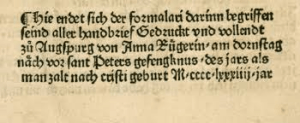 ¶Hie endet sich der formalari darinn begriffen
seind aller handbrief Gedruckt vnd vollendt
zů Augspurg von Anna Rügerin, am dornstag
nåch vor sant Peters gefengknus, des jars als
man zalt nach cristi geburt M, cccc, lxxxiiij, jar